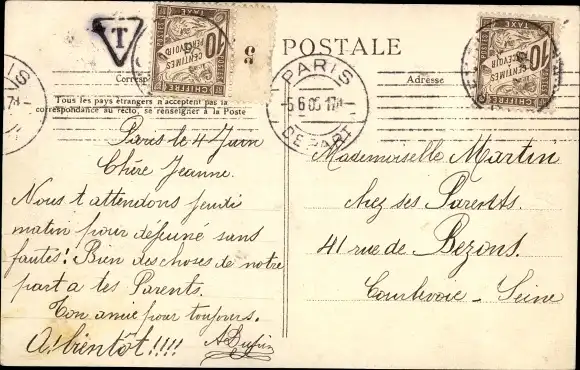 T
10
CENTIMES
À PERCEVOIR
CHIFFRE
TAXE
5
POSTALE
TAXE
10
CENTIMES
À PERCEVOIR
CHIFFRE
PARIS
5 6 05 17
DEPART
Corresp
Adresse
Tous les pays étrangers n'acceptent pas la
correspondance au recto, se renseigner à la Poste
Paris le 4 Juin
Chère Jeanne.
Nous t'attendons jeudi
matin pour déjeuné sans
fautes! Bien des choses de notre
part a tes Parents.
Ton amie pour toujours.
A. bientôt!!!!
Mademoiselle Martin
chez ses Parents.
41 rue de Bezons.
Courbevoie - Seine